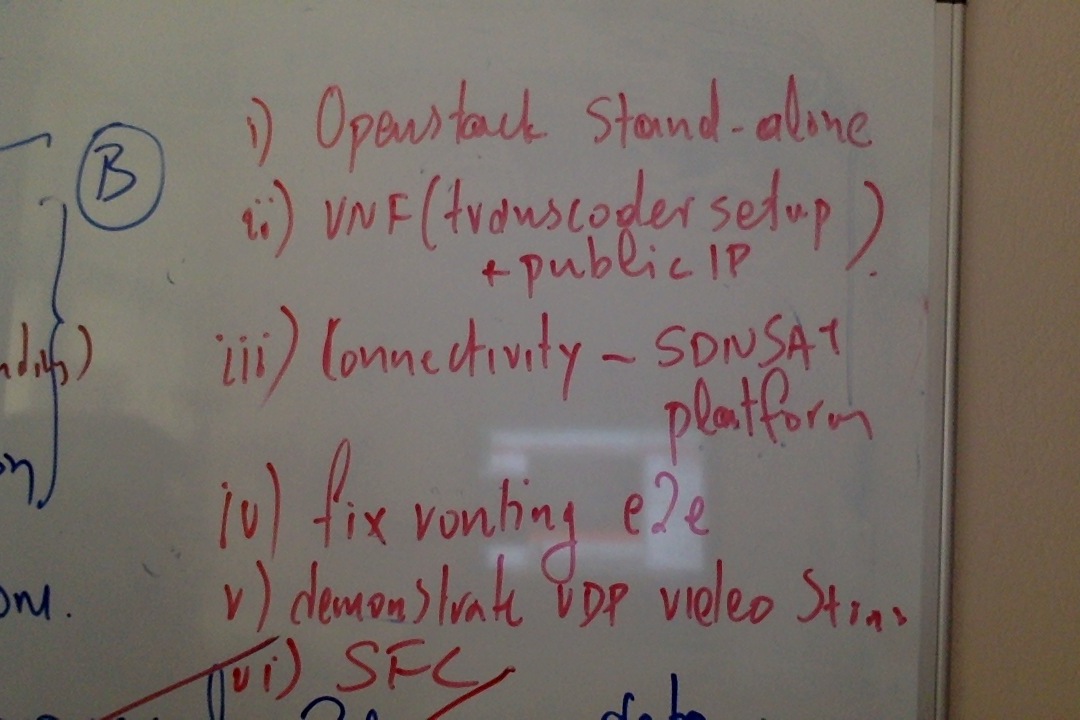 B
i) Openstack Stand-alone
ii) VNF (transcoder setup
+ public IP ).
iii) Connectivity – SDNSAT
platform
iv) fix routing e2e
v) demonstrate UDP video
vi) SFC
data